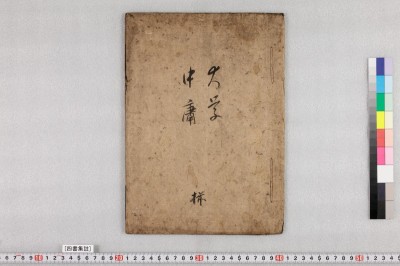 大学
中庸
[四書集註]